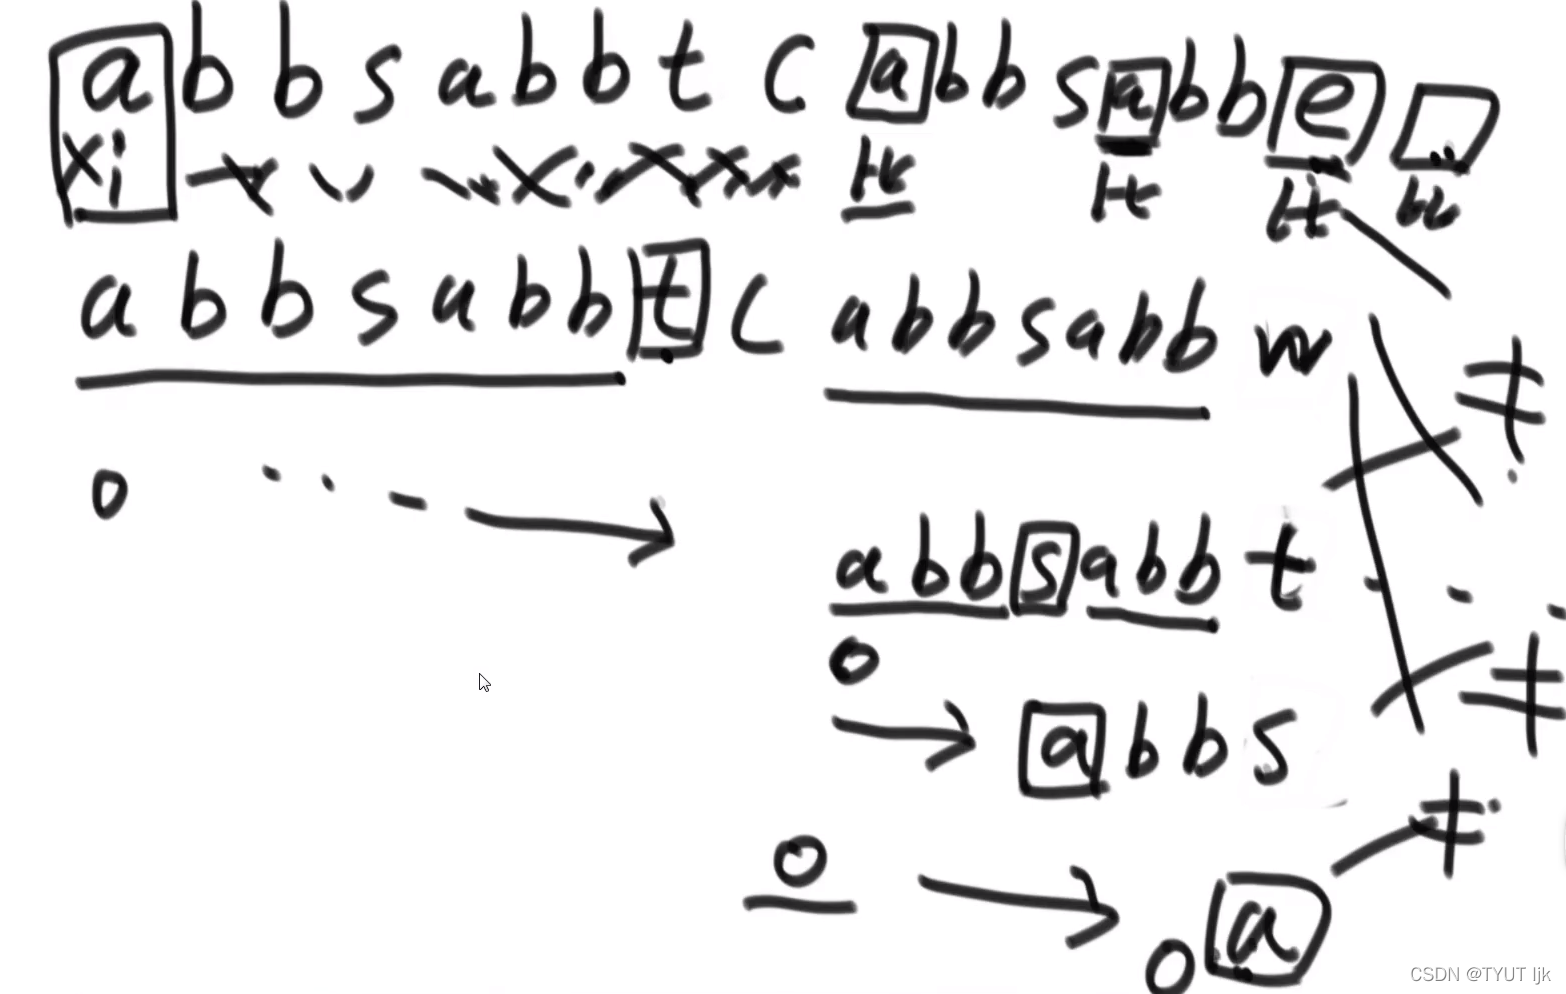 a b b s a b b t c a b b s a b b e
xi
a b b s a b b t c a b b s a b b w
≠
0
a b b s a b b t
0
≠
a b b s
≠
0
0 a
CSDN @TYUT ljk